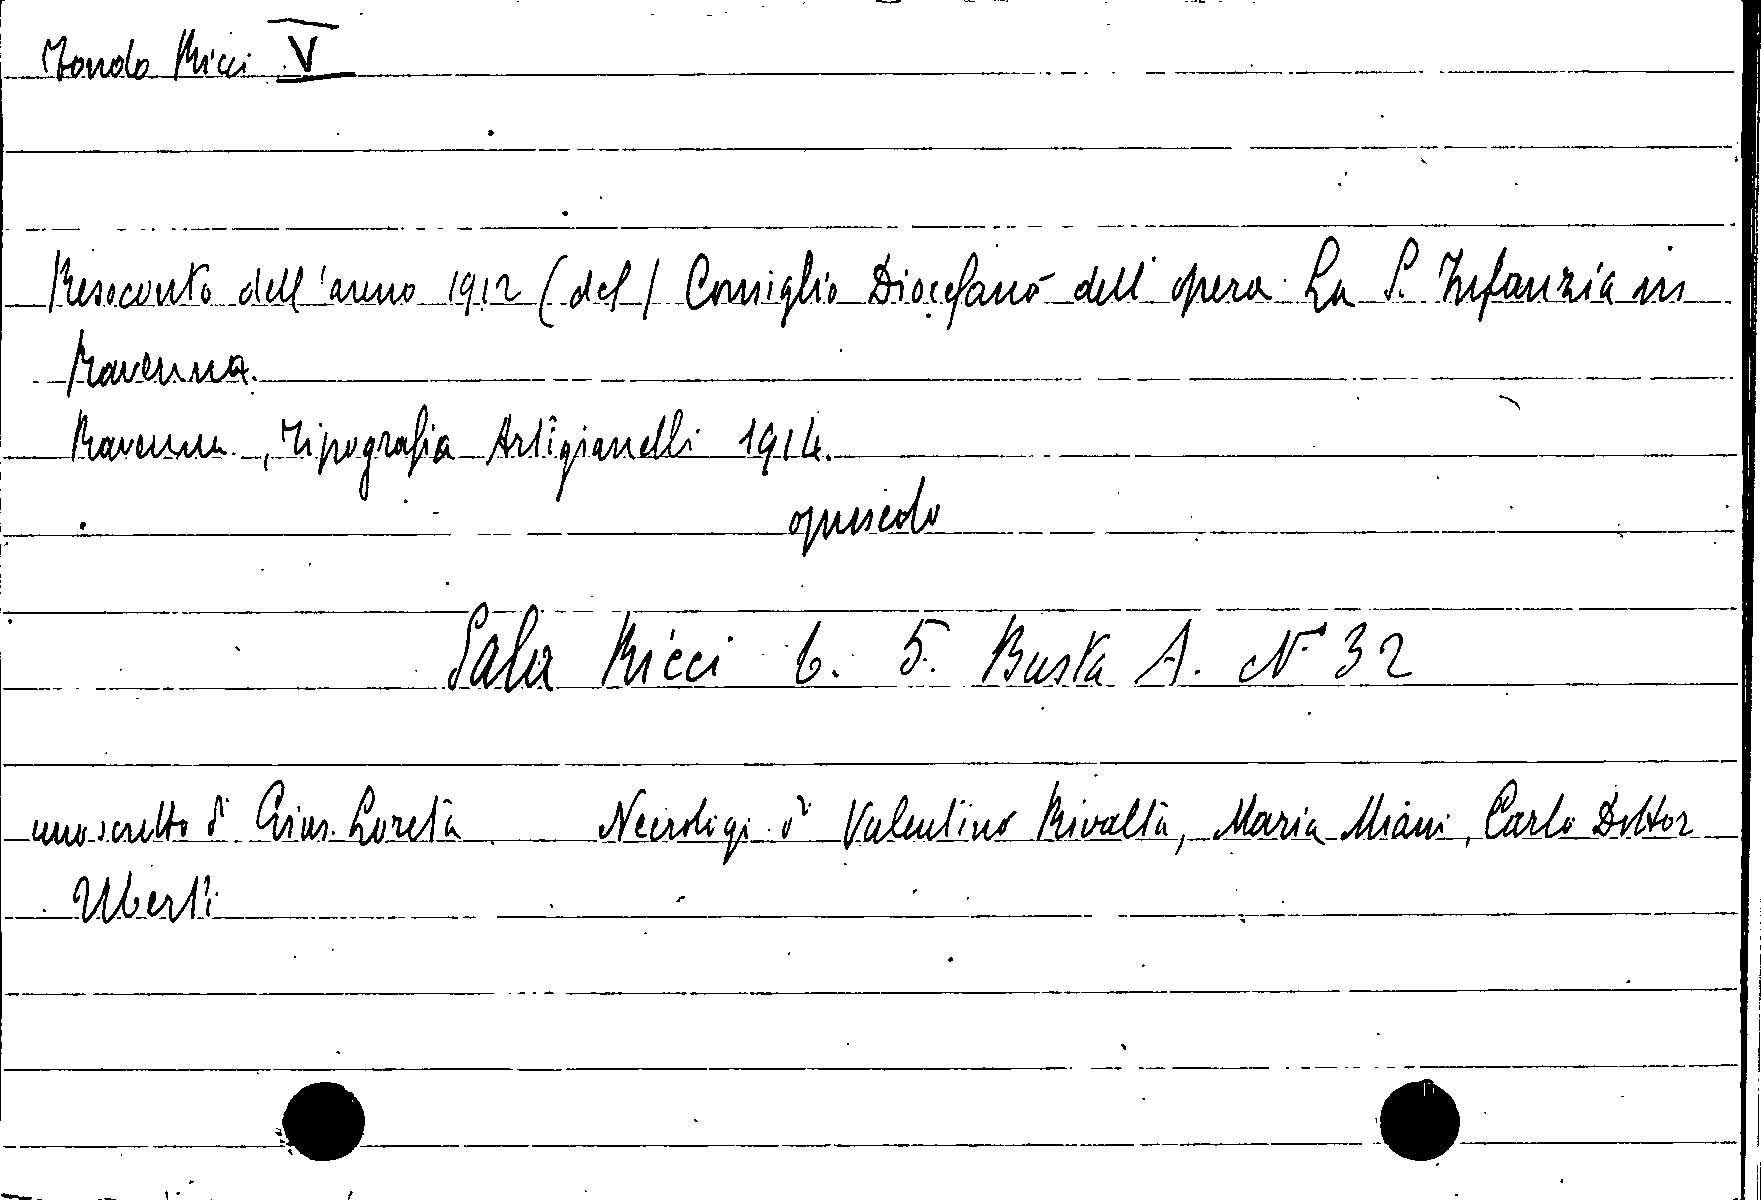 Fondo Ricci V
Resoconto dell'anno 1912 (del) Consiglio Diocesano dell'opera La S. Infanzia in
Ravenna.
Ravenna, Tipografia Artigianelli 1914.
opuscolo
Sala Ricci 6. 5. Busta A. N. 32
uno scritto di Gius. Loreta Necrologi di Valentino Rivalta, Maria Miani, Carlo Dottor
Uberti